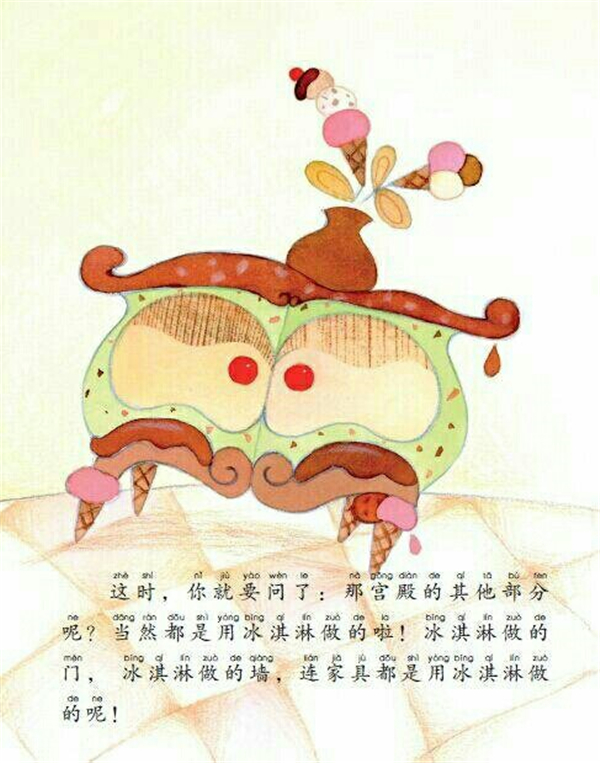 zhè shí nǐ jiù yào wèn le nà gōng diàn de qí tā bù fen
这时，你就要问了：那宫殿的其他部分
ne dāng rán dōu shì yòng bīng qí lín zuò de la bīng qí lín zuò de
呢？当然都是用冰淇淋做的啦！冰淇淋做的
mén bīng qí lín zuò de qiáng lián jiā jù dōu shì yòng bīng qí lín zuò
门，冰淇淋做的墙，连家具都是用冰淇淋做
de ne
的呢！